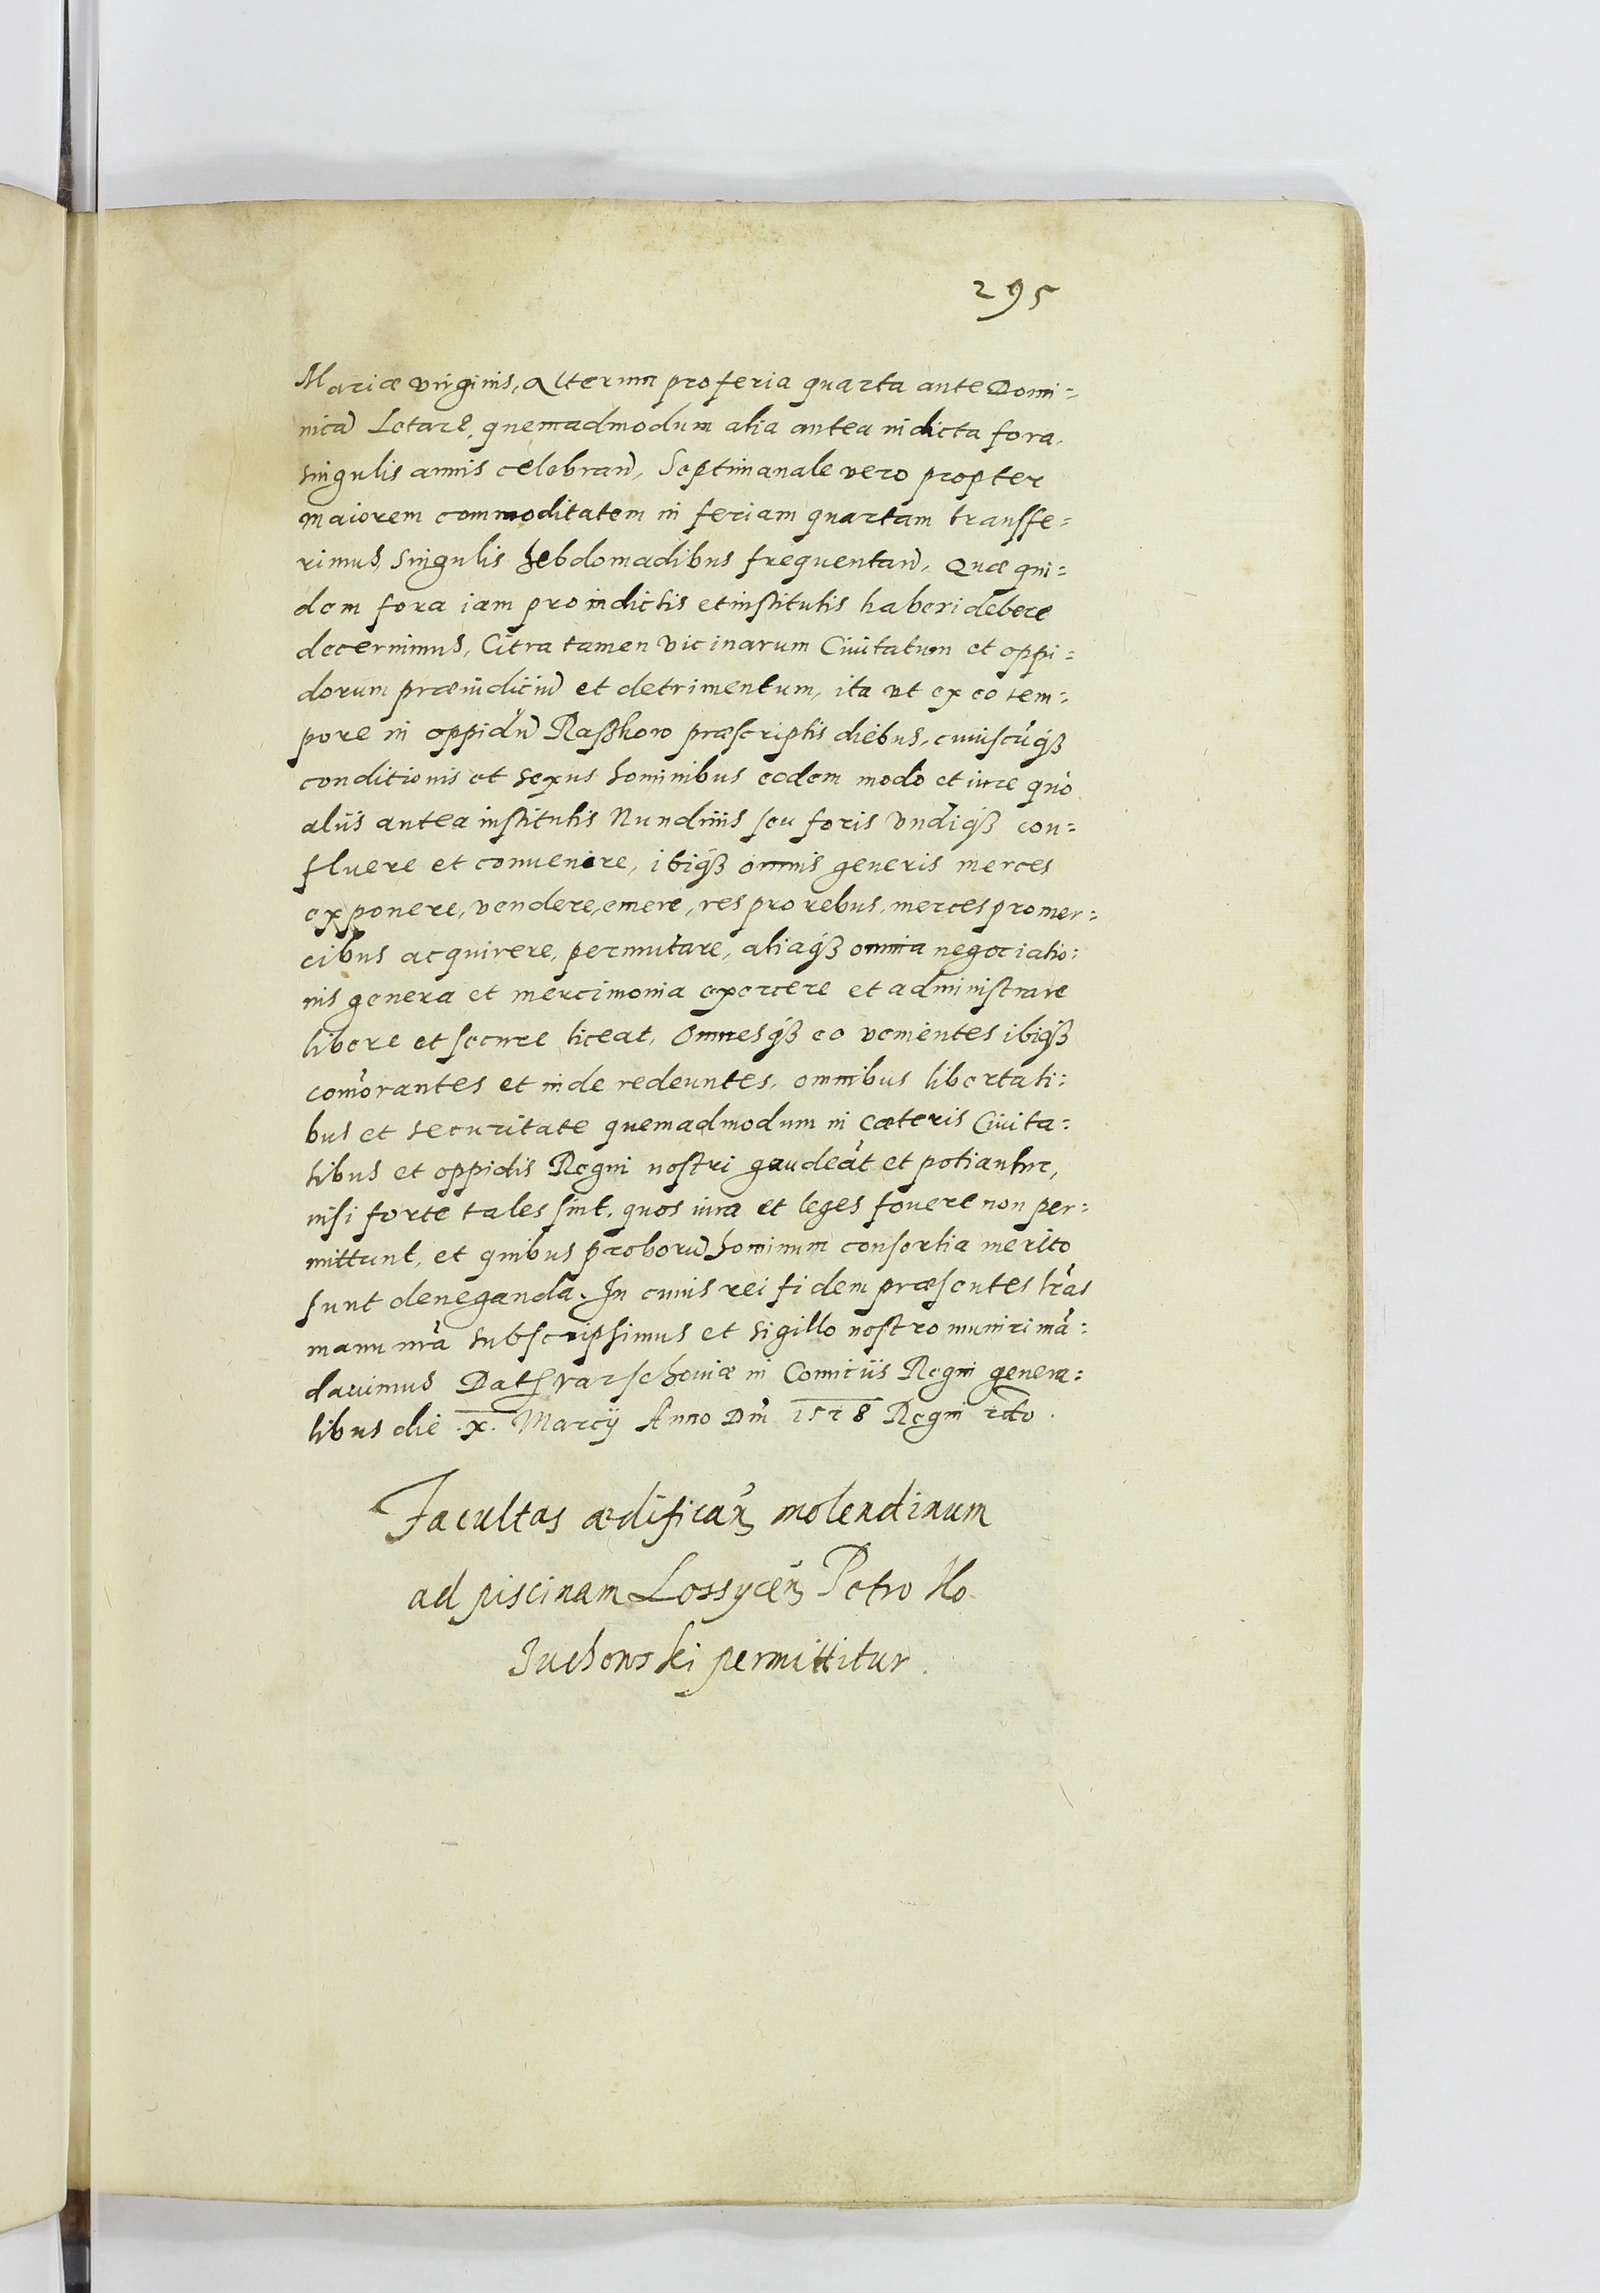 295
Mariæ virginis, Alterum pro feria quarta ante Domi=
nicã Letare, quemadmodum alia antea indicta fora,
singulis annis celebrañ, Septimanale vero propter
maiorem commoditatem in feriam quartam transfe=
rimus, singulis hebdomadibus frequentañ, Quæ qui=
dem fora iam pro indictis et institutis haberi debere
decernimus, Citra tamen vicinarum Ciuitatum et oppi=
dorum præiudiciũ et detrimentum, ita vt ex eo tem=
pore in oppidũ Raßkow præscriptis diebus, cuiuscũqȝ
conditionis et sexus hominibus eodem modo et iure quo
aliis antea institutis Nundinis seu foris vndiqȝ con=
fluere et conuenire, ibiqȝ omnis generis merces
exponere, vendere, emere, res pro rebus, merces pro mer=
cibus acquirere, permutare, aliaqȝ omnia negociatio=
nis genera et mercimonia exercere et administrare
libere et secure liceat, Omnesqȝ eo venientes ibiqȝ
com̃orantes et inde redeuntes, omnibus libertati=
bus et securitate quemadmodum in cæteris Ciuita=
tibus et oppidis Regni nostri gaudeãt et potiantur,
nisi forte tales sint, quos iura et leges fouere non per=
mittunt, et quibus proborũ hominum consortia merito
sunt deneganda. In cuius rei fidem præsentes lr̃as
manu nr̃a subscripsimus et sigillo nostro muniri mã=
dauimus Datȝ varschouiæ in Comitiis Regni genera=
libus die .x. Marcij Anno Dnĩ 1578 Regni
Facultas ædificañ molendinum
ad piscinam Lossyceñ Petro Ko
suchowski permittitur.